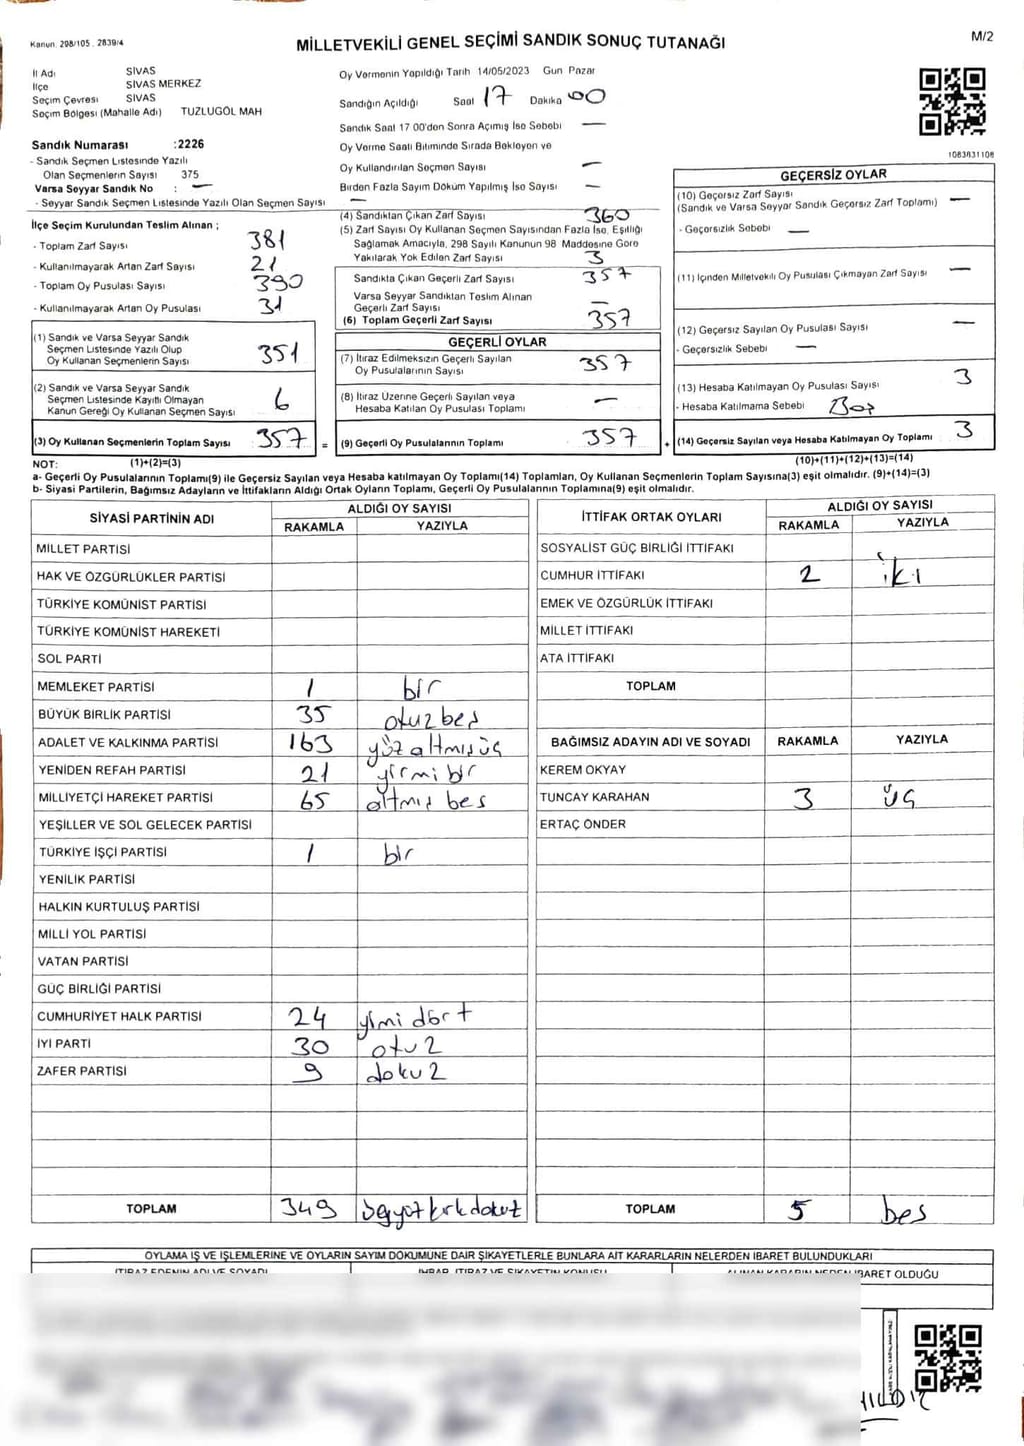 Kanun. 298/105, 2839/4
MİLLETVEKİLİ GENEL SEÇİMİ SANDIK SONUÇ TUTANAĞI
M/2
İl Adı SİVAS
İlçe SİVAS MERKEZ
Seçim Çevresi SİVAS
Seçim Bölgesi (Mahalle Adı) TUZLUGÖL MAH
Sandık Numarası :2226
- Sandık Seçmen Listesinde Yazılı
Olan Seçmenlerin Sayısı 375
Varsa Seyyar Sandık No : —
- Seyyar Sandık Seçmen Listesinde Yazılı Olan Seçmen Sayısı —
Oy Vermenin Yapıldığı Tarih 14/05/2023 Gün Pazar
Sandığın Açıldığı Saat 17 Dakika 00
Sandık Saat 17 00'den Sonra Açımış İse Sebebi —
Oy Verme Saati Bitiminde Sırada Bekleyen ve
Oy Kullandırılan Seçmen Sayısı —
Birden Fazla Sayım Döküm Yapılmış İse Sayısı —
1083831108
İlçe Seçim Kurulundan Teslim Alınan ;
- Toplam Zarf Sayısı 381
- Kullanılmayarak Artan Zarf Sayısı 21
- Toplam Oy Pusulası Sayısı 390
- Kullanılmayarak Artan Oy Pusulası 31
(1) Sandık ve Varsa Seyyar Sandık
Seçmen Listesinde Yazılı Olup
Oy Kullanan Seçmenlerin Sayısı 351
(2) Sandık ve Varsa Seyyar Sandık
Seçmen Listesinde Kayıtlı Olmayan
Kanun Gereği Oy Kullanan Seçmen Sayısı 6
(3) Oy Kullanan Seçmenlerin Toplam Sayısı 357 =
(4) Sandıktan Çıkan Zarf Sayısı 360
(5) Zarf Sayısı Oy Kullanan Seçmen Sayısından Fazla İse, Eşitliği
Sağlamak Amacıyla, 298 Sayılı Kanunun 98 Maddesine Göre
Yakılarak Yok Edilen Zarf Sayısı 3
Sandıkta Çıkan Geçerli Zarf Sayısı 357
Varsa Seyyar Sandıktan Teslim Alınan
Geçerli Zarf Sayısı —
(6) Toplam Geçerli Zarf Sayısı 357
GEÇERLİ OYLAR
(7) İtiraz Edilmeksizin Geçerli Sayılan
Oy Pusulalarının Sayısı 357
(8) İtiraz Üzerine Geçerli Sayılan veya
Hesaba Katılan Oy Pusulası Toplamı —
(9) Geçerli Oy Pusulalarının Toplamı 357 +
GEÇERSİZ OYLAR
(10) Geçersiz Zarf Sayısı
(Sandık ve Varsa Seyyar Sandık Geçersiz Zarf Toplamı) —
- Geçersizlik Sebebi —
(11) İçinden Milletvekili Oy Pusulası Çıkmayan Zarf Sayısı —
(12) Geçersiz Sayılan Oy Pusulası Sayısı —
- Geçersizlik Sebebi —
(13) Hesaba Katılmayan Oy Pusulası Sayısı 3
- Hesaba Katılmama Sebebi Boş
(14) Geçersiz Sayılan veya Hesaba Katılmayan Oy Toplamı 3
NOT: (1)+(2)=(3)
(10)+(11)+(12)+(13)=(14)
a- Geçerli Oy Pusulalarının Toplamı(9) ile Geçersiz Sayılan veya Hesaba katılmayan Oy Toplamı(14) Toplamları, Oy Kullanan Seçmenlerin Toplam Sayısına(3) eşit olmalıdır. (9)+(14)=(3)
b- Siyasi Partilerin, Bağımsız Adayların ve İttifakların Aldığı Ortak Oyların Toplamı, Geçerli Oy Pusulalarının Toplamına(9) eşit olmalıdır.
SİYASİ PARTİNİN ADI ALDIĞI OY SAYISI
RAKAMLA YAZIYLA
MİLLET PARTİSİ
HAK VE ÖZGÜRLÜKLER PARTİSİ
TÜRKİYE KOMÜNİST PARTİSİ
TÜRKİYE KOMÜNİST HAREKETİ
SOL PARTİ
MEMLEKET PARTİSİ 1 bir
BÜYÜK BİRLİK PARTİSİ 35 otuz beş
ADALET VE KALKINMA PARTİSİ 163 yüz altmış üç
YENİDEN REFAH PARTİSİ 21 yirmi bir
MİLLİYETÇİ HAREKET PARTİSİ 65 altmış beş
YEŞİLLER VE SOL GELECEK PARTİSİ
TÜRKİYE İŞÇİ PARTİSİ 1 bir
YENİLİK PARTİSİ
HALKIN KURTULUŞ PARTİSİ
MİLLİ YOL PARTİSİ
VATAN PARTİSİ
GÜÇ BİRLİĞİ PARTİSİ
CUMHURİYET HALK PARTİSİ 24 yimi dört
İYİ PARTİ 30 otuz
ZAFER PARTİSİ 9 dokuz
TOPLAM 349
İTTİFAK ORTAK OYLARI ALDIĞI OY SAYISI
RAKAMLA YAZIYLA
SOSYALİST GÜÇ BİRLİĞİ İTTİFAKI
CUMHUR İTTİFAKI 2 iki
EMEK VE ÖZGÜRLÜK İTTİFAKI
MİLLET İTTİFAKI
ATA İTTİFAKI
TOPLAM
BAĞIMSIZ ADAYIN ADI VE SOYADI RAKAMLA YAZIYLA
KEREM OKYAY
TUNCAY KARAHAN 3 üç
ERTAÇ ÖNDER
TOPLAM 5 beş
OYLAMA İŞ VE İŞLEMLERİNE VE OYLARIN SAYIM DÖKÜMÜNE DAİR ŞİKAYETLERLE BUNLARA AİT KARARLARIN NELERDEN İBARET BULUNDUKLARI
İTİRAZ EDENİN ADI VE SOYADI İHBAR, İTİRAZ VE ŞİKAYETİN KONUSU ALINAN KARARIN NEDEN İBARET OLDUĞU